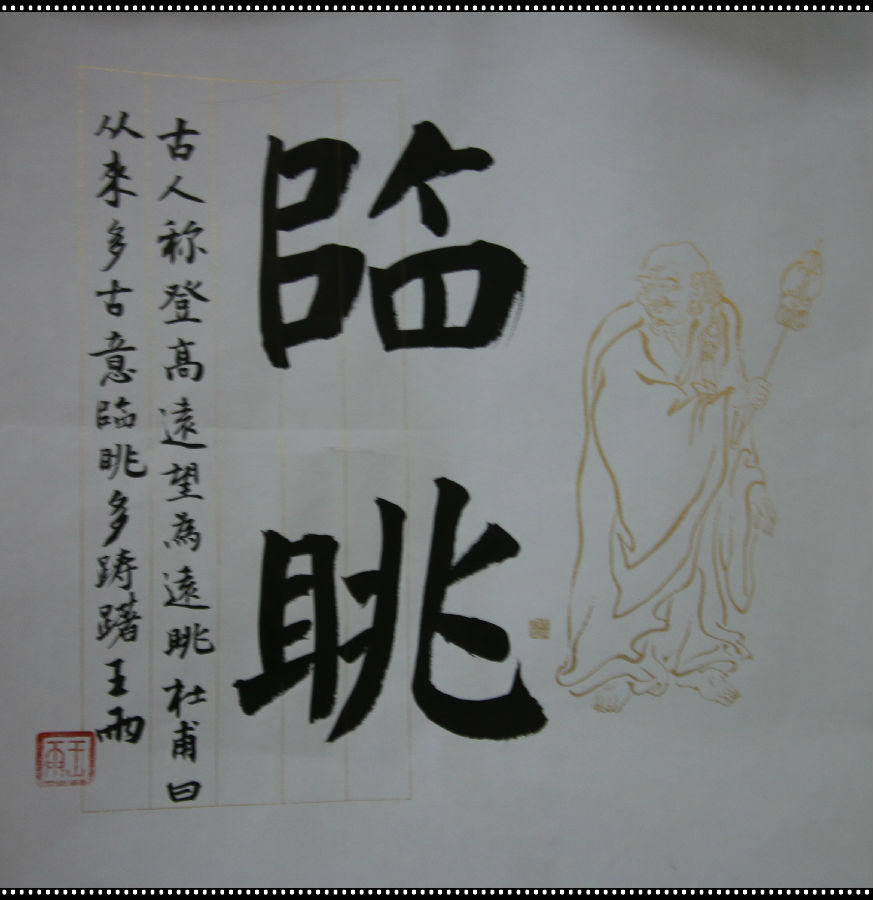 临眺
古人称登高遠望為遠眺杜甫曰
从来多古意临眺多踌躇王雨
王雨